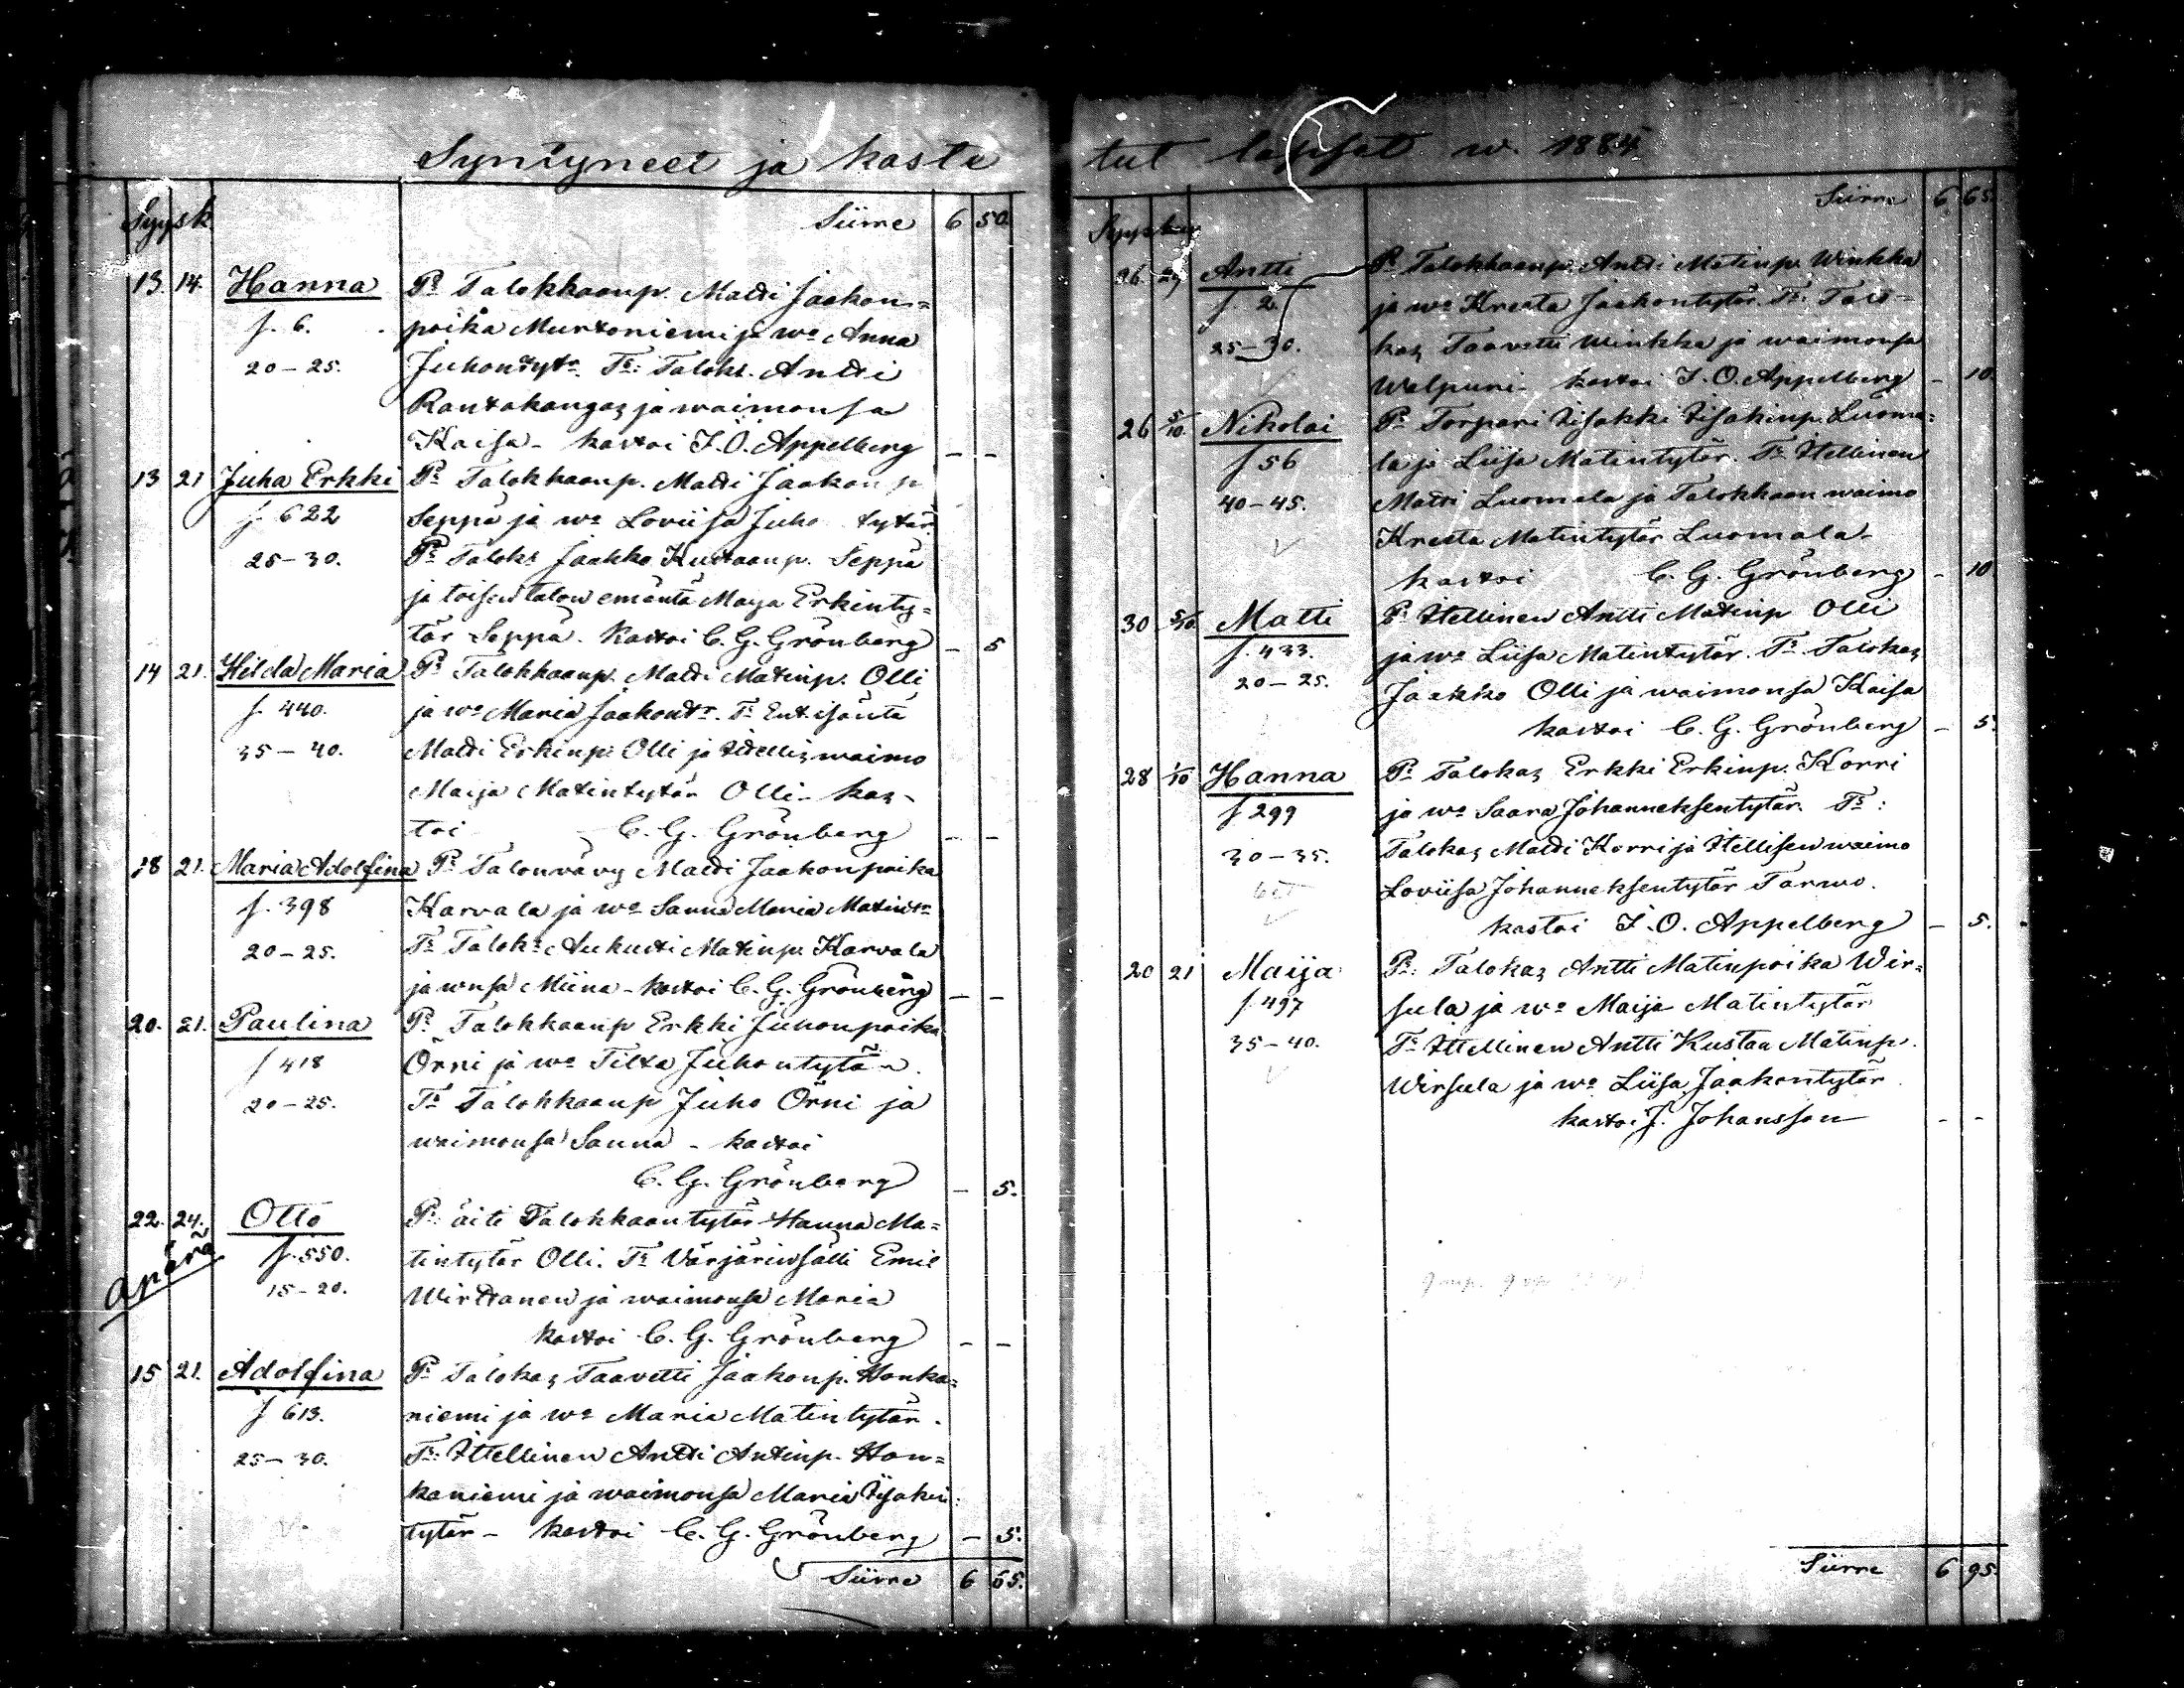 Syntyneet ja kaste
Syysk. Siirre 6 50.
13. 14. Hanna P: Talokkaanp. Matti Jaakon=
f. 6. poika Murtoniemi ja wo Anna
20-25. Juhontytr. To: Taloks. Antti
Rantakangas ja waimonsa
Kaisa - kastoi J.O. Appelberg - -
13 21 Juha Erkki P: Talokkaanp. Matti Jaakonp
f. 622 Seppä ja wo Loviisa Juho tytär
25-30. To Taloks Jaakko Kustaanp. Seppä
ja toisen talon emäntä Maija Erkinty=
tär Seppä. Kastoi C. G. Grönberg - 5
14 21. Hilda Maria P: Talokkaanp. Matti Matinp. Olli
f. 440. ja wo Maria Jaakontr. To Ent. isäntä
35-40. Matti Erkinp. Olli ja Itellis waimo
Maija Matintytär Olli - kas-
toi C. G. Grönberg - -
18 21. Maria Adolfina P: Talonvävy Matti Jaakonpoika
f. 398 Karvala ja wo Sanna Maria Matintr
20-25. To Taloks Aukusti Matinp. Karvala
ja wnsa Miina - kastoi C. G. Grönberg - -
20. 21. Paulina P: Talokkaanp Erkki Juhonpoika
f 418 Örni ja wo Tilta Juhontytär.
20-25. To Talokkaanp Juho Örni ja
waimonsa Sanna - kastoi
C. G. Grönberg - 5.
22. 24. Otto P: äiti Talokkaantytär Hanna Ma=
äpärä f. 550. tintytär Olli. To Värjärinsälli Emil
15-20. Wirttanen ja waimonsa Maria
kastoi C. G. Grönberg - -
15 21. Adolfina P: Talokas Taavetti Jaakonp. Honka=
f 613. niemi ja wo Maria Matintytär.
25-30. To: Ittellinen Antti Antinp. Hon=
kaniemi ja waimonsa Maria Iisakin
tytär - kastoi C. G. Grönberg - 5.
Siirre 6 65.
tut lapset w. 1884
Siirre 6 65.
Syysku
26 29 Antti P: Talokkaanp. Antti Matinp. Winkka
f 2. ja wo Kreeta Jaakontytär. To. Talo-
25-30. kas Taavetti Winkka ja waimonsa
Walpuri - kastoi J. O. Appelberg - 10.
26 5/10. Nikolai P: Torpari Iisakki Iisakinp. Luoma=
f 56 la ja Liisa Matintytär. To Itellinen
40-45. Matti Luomala ja Talokkaan waimo
Kreeta Matintytär Luomala -
kastoi C. G. Grönberg - 10
30 5/10. Matti P: Itellinen Antti Matinp Olli
f. 433. ja wo Liisa Matintytär. To Talokas
20-25. Jaakko Olli ja waimonsa Kaisa
kastoi C. G. Grönberg - 5.
28 1/10 Hanna P: Talokas Erkki Erkinp. Korri
f 299 ja wo Saara Johanneksentytär. To:
30-35. Talokas Matti Korri ja Itellisen waimo
Loviisa Johanneksentytär Tarwo.
kastoi J. O. Appelberg - 5.
20 21 Maija P: Talokas Antti Matinpoika Wir=
f. 497 sula ja wo Maija Matintytär
35-40. To Ittellinen Antti Kustaa Matinp.
Wirsula ja wo Liisa Jaakontytär.
kastoi J. Johansson - -
Siirre 6 95.